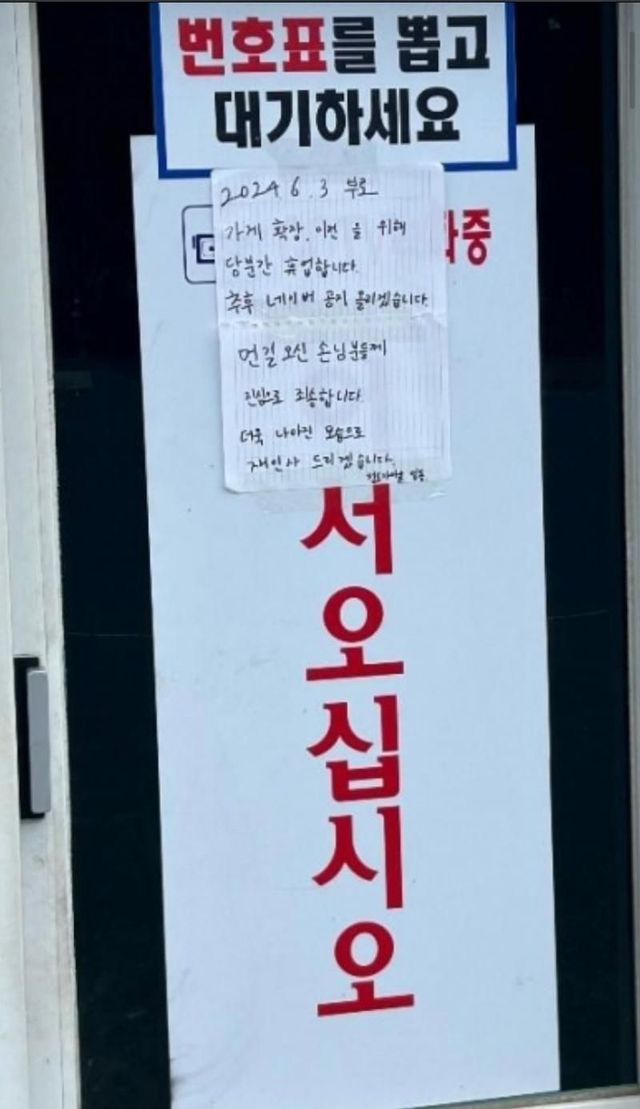 번호표를 뽑고
대기하세요
2024. 6. 3 부로
가게 확장. 이전 을 위해
당분간 휴업합니다.
추후 네이버 공지 올리겠습니다.
먼길 오신 손님분들께
진심으로 죄송합니다.
더욱 나아진 모습으로
재인사 드리겠습니다.
중
서오십시오